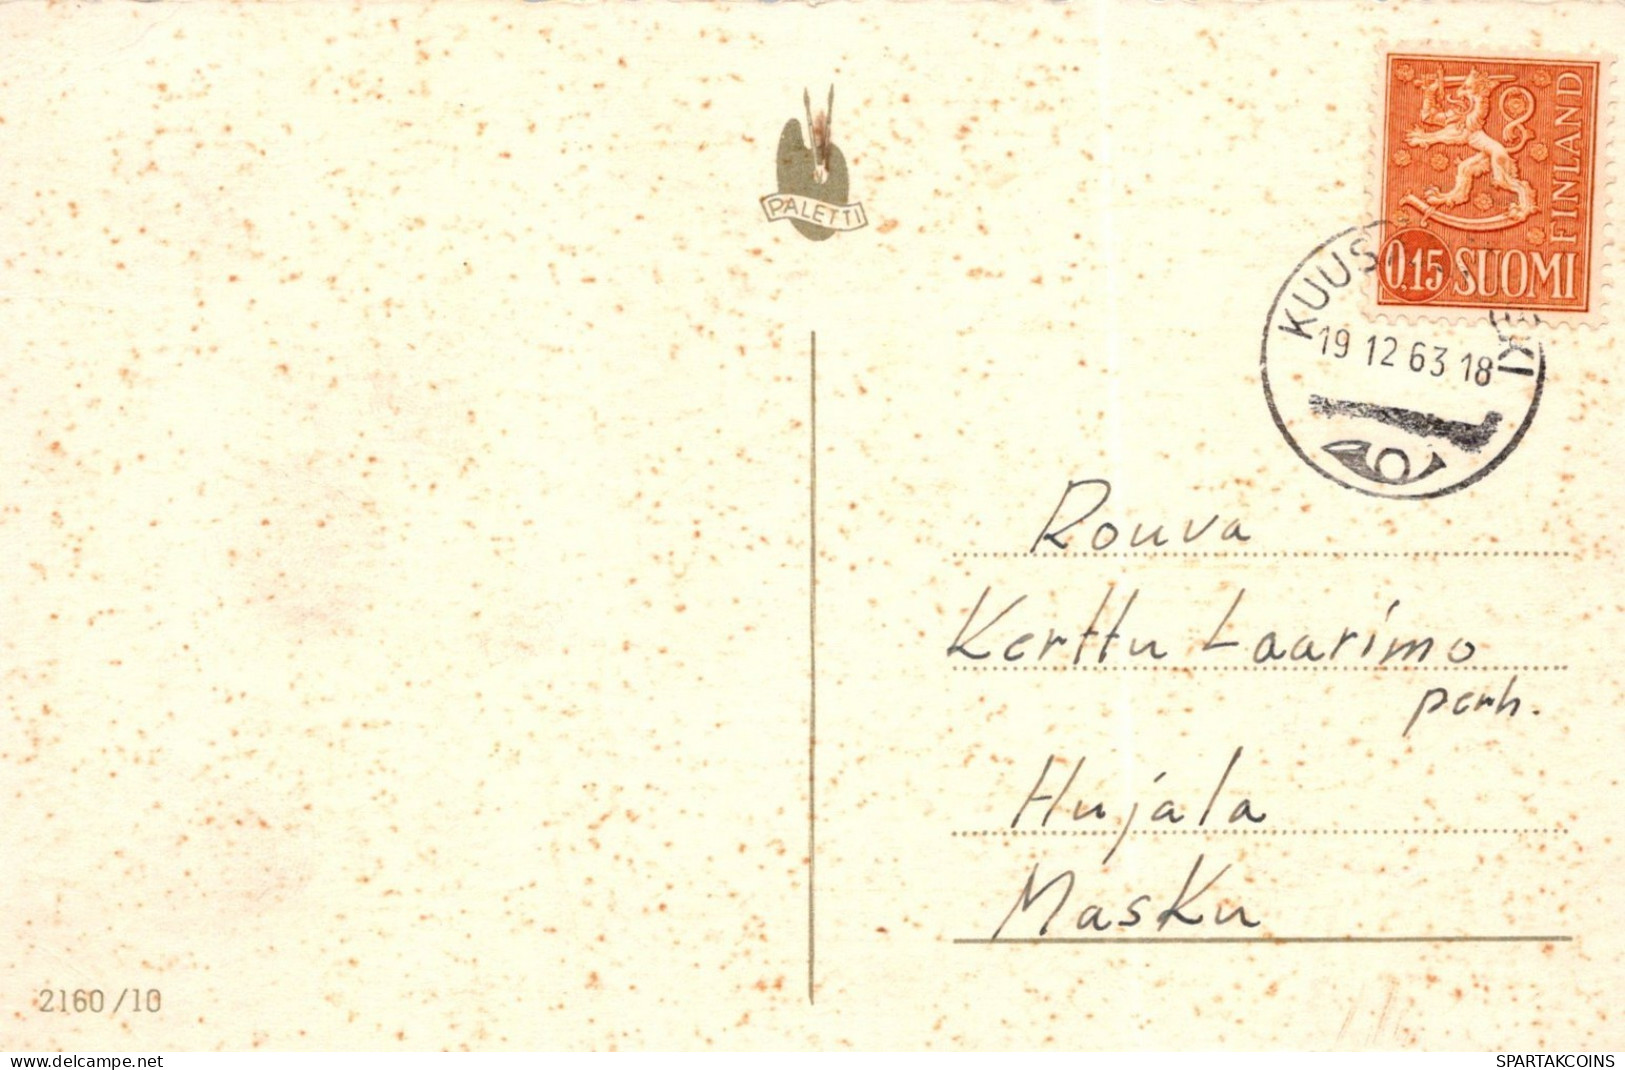 PALETTI
FINLAND
0,15 SUOMI
19 12 63 18
Rouva
Kerttu Laarimo
perh.
Hujala
Masku
2160/10
delcampe.net
SPARTAKCOINS